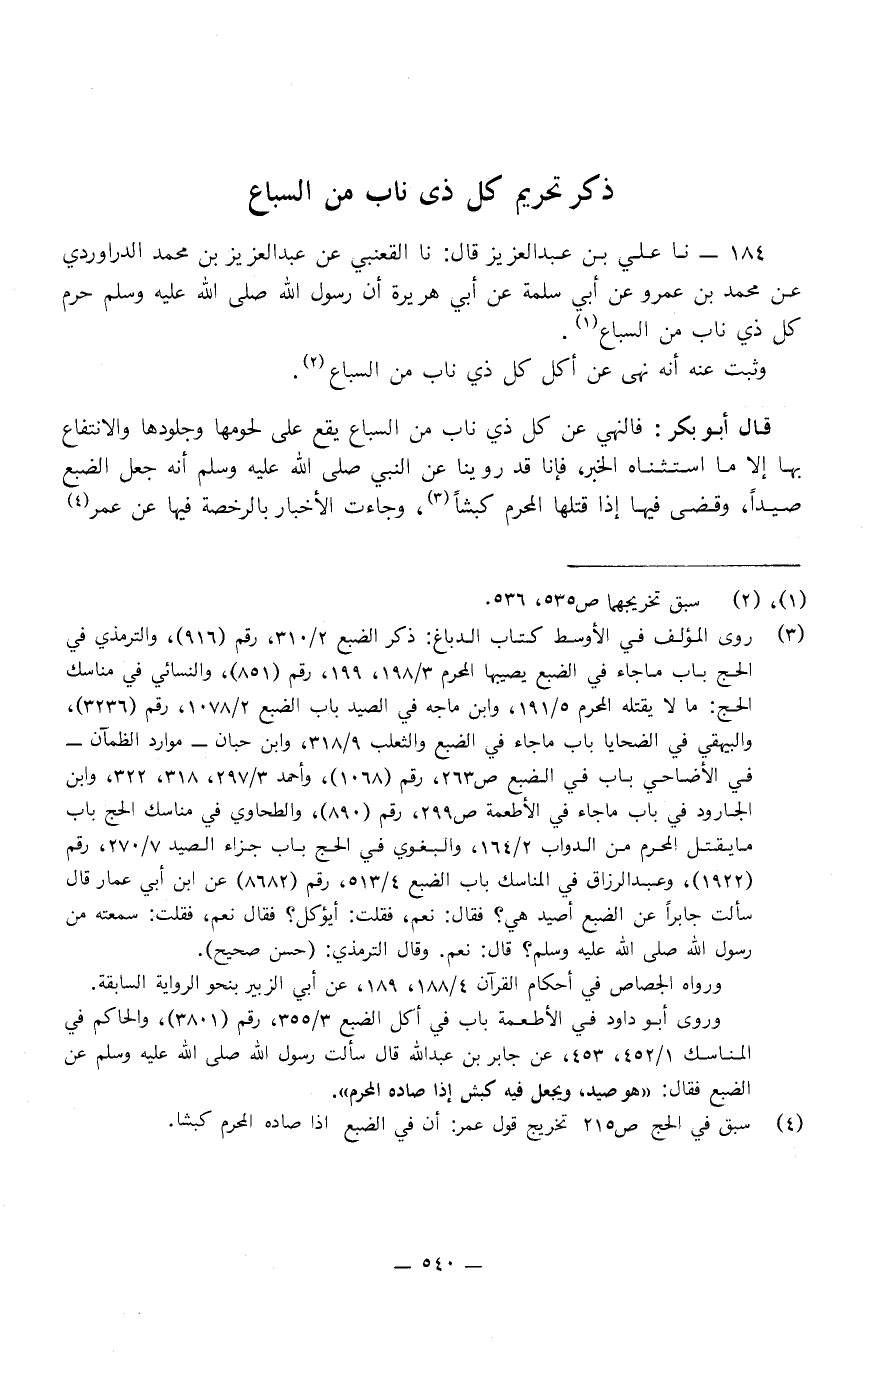 ذكر تحريم كل ذى ناب من السباع
١٨٤ – نا علي بن عبدالعزيز قال: نا القعنبي عن عبدالعزيز بن محمد الدراوردي
عن محمد بن عمرو عن أبي سلمة عن أبي هريرة أن رسول الله صلى الله عليه وسلم حرم
كل ذي ناب من السباع(١).
وثبت عنه أنه نهى عن أكل كل ذي ناب من السباع(٢).
قال أبو بكر: فالنهي عن كل ذي ناب من السباع يقع على لحومها وجلودها والانتفاع
بها إلا ما استثناه الخبر، فإنا قد روينا عن النبي صلى الله عليه وسلم أنه جعل الضبع
صيداً، وقضى فيها إذا قتلها المحرم كبشاً(٣)، وجاءت الأخبار بالرخصة فيها عن عمر(٤)
(١)، (٢) سبق تخريجها ص٥٣٥، ٥٣٦.
(٣) روى المؤلف في الأوسط كتاب الدباغ: ذكر الضبع ٣١٠/٢، رقم (٩١٦)، والترمذي في
الحج باب ماجاء في الضبع يصيبها المحرم ١٩٨/٣، ١٩٩، رقم (٨٥١)، والنسائي في مناسك
الحج: ما لا يقتله المحرم ١٩١/٥، وابن ماجه في الصيد باب الضبع ١٠٧٨/٢، رقم (٣٢٣٦)،
والبيهقي في الضحايا باب ماجاء في الضبع والثعلب ٣١٨/٩، وابن حبان – موارد الظمآن –
في الأضاحي باب في الضبع ص٢٦٣، رقم (١٠٦٨)، وأحمد ٢٩٧/٣، ٣١٨، ٣٢٢، وابن
الجارود في باب ماجاء في الأطعمة ص٢٩٩، رقم (٨٩٠)، والطحاوي في مناسك الحج باب
مايقتل المحرم من الدواب ١٦٤/٢، والبغوي في الحج باب جزاء الصيد ٢٧٠/٧، رقم
(١٩٢٢)، وعبدالرزاق في المناسك باب الضبع ٥١٣/٤، رقم (٨٦٨٢) عن ابن أبي عمار قال
سألت جابراً عن الضبع أصيد هي؟ فقال: نعم، فقلت: أيؤكل؟ فقال نعم، فقلت: سمعته من
رسول الله صلى الله عليه وسلم؟ قال: نعم. وقال الترمذي: (حسن صحيح).
ورواه الجصاص في أحكام القرآن ١٨٨/٤، ١٨٩، عن أبي الزبير بنحو الرواية السابقة.
وروى أبو داود في الأطعمة باب في أكل الضبع ٣٥٥/٣، رقم (٣٨٠١)، والحاكم في
المناسك ٤٥٢/١، ٤٥٣، عن جابر بن عبدالله قال سألت رسول الله صلى الله عليه وسلم عن
الضبع فقال: «هو صيد، ويجعل فيه كبش إذا صاده المحرم».
(٤) سبق في الحج ص٢١٥ تخريج قول عمر: أن في الضبع اذا صاده المحرم كبشا.
– ٥٤٠ –